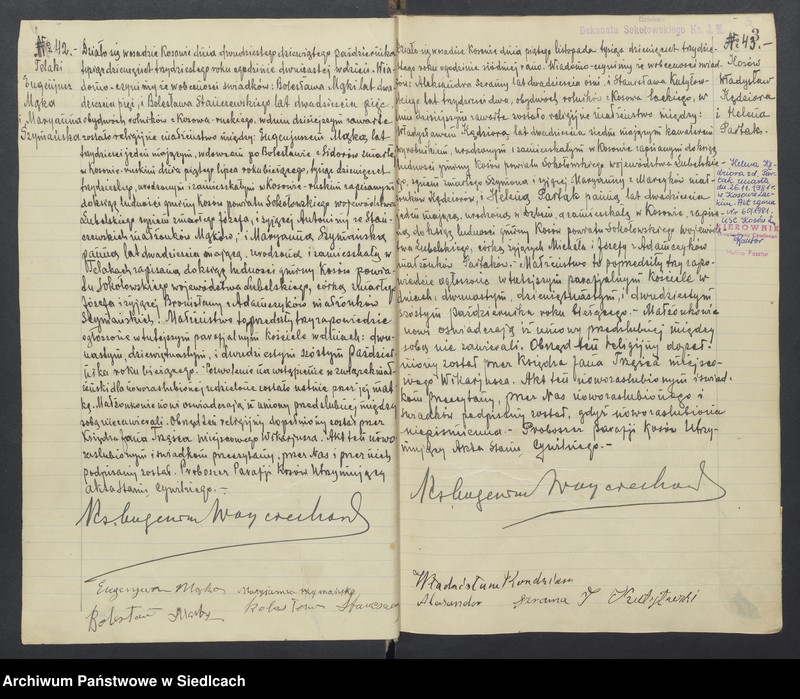 № 42.-
Telaki
Eugenjusz
Mąka
i Maryanna
Szymańska
Działo się w osadzie Kosowie dnia dwudziestego dziewiątego października
tysiąc dziewięćset trzydziestego roku o godzinie dwunastej w dzień. Wia-
domo czynimy że w obecności świadków: Bolesława Mąki lat dwa-
dzieścia pięć, i Bolesława Stańczewskiego lat dwadzieścia pięć
obydwóch rolników z Kosowa-ruskiego, w dniu dzisiejszym zawarte
zostało religijne małżeństwo między: Eugenjuszem Mąką, lat
trzydzieści jeden mającym, wdowcem po Bolesławie z Sidorów zmarłej
w Kosowie-ruskim dnia piątego lipca roku bieżącego, tysiąc dziewięćset
trzydziestego, urodzonym i zamieszkałym w Kosowie-ruskim zapisanym
do ksiąg ludności gminy Kosów powiatu Sokołowskiego województwa
Lubelskiego synem zmarłego Józefa, i żyjącej Antoniny ze Stań-
czewskich małżonków Mąków, i Maryanną Szymańską
panną lat dwadzieścia mającą, urodzoną i zamieszkałą w
Telakach zapisaną do ksiąg ludności gminy Kosów powia-
tu Sokołowskiego województwa Lubelskiego, córką zmarłego
Józefa i żyjącej Bronisławy z Adamczyków małżonków
Szymańskich. Małżeństwo to poprzedziły trzy zapowiedzie
ogłoszone w tutejszym parafjalnym kościele w dniach: dwu-
nastym, dziewiętnastym, i dwudziestym szóstym Paździer-
nika roku bieżącego. Pozwolenie na wstąpienie w związek mał-
żeński dla nowozaślubionej udzielone zostało ustnie przez jej mat-
kę. Małżonkowie nowi oświadczają iż umowy przedślubnej między
sobą nie zawierali. Obrzęd ten religijny dopełniony został przez
Księdza Jana Trzęsa miejscowego Wikarjusza. Akt ten nowo-
zaślubionym i świadkom przeczytany, przez Nas i przez nich
podpisany został. Proboszcz Parafji Kosów Utrzymujący
Akta Stanu Cywilnego.-
Ks. Eugenium
Eugenjusz Mąka Maryanna Szymańska
Bolesław Mąka Bolesław
Dekanatu Sokołowskiego
№ 43.-
Kosów
Władysław
Kędziora
i Helena
Partak.
Działo się w osadzie Kosowie dnia piątego listopada tysiąc dziewięćset trzydzie-
stego roku o godzinie siódmej rano. Wiadomo czynimy że w obecności świad-
ków: Aleksandra Seramy lat dwadzieścia ośm, i Stanisława
lat trzydzieści dwa, obydwóch rolników z Kosowa lackiego, w
dniu dzisiejszym zawarte zostało religijne małżeństwo między:
Władysławem Kędziorą, lat dwadzieścia siedm mającym kawalerem
wyrobnikiem, urodzonym i zamieszkałym w Kosowie zapisanym do ksiąg
ludności gminy Kosów powiatu Sokołowskiego województwa Lubelskie-
go, synem zmarłego Szymona i żyjącej Maryanny z małż-
żonków Kędziorów, i Heleną Partak panną lat dwadzieścia
jeden mającą, urodzoną w zamieszkałą w Kosowie, zapisa-
ną do ksiąg ludności gminy Kosów powiatu Sokołowskiego wojewódz-
twa Lubelskiego, córką żyjących Michała i Józefy z Adamczyków
małżonków Partaków.- Małżeństwo to poprzedziły trzy zapo-
wiedzie ogłoszone w tutejszym parafjalnym kościele w
dniach: dwunastym, dziewiętnastym, i dwudziestym
szóstym Października roku bieżącego.- Małżonkowie
nowi oświadczają iż umowy przedślubnej między
sobą nie zawierali. Obrzęd ten religijny dopeł-
niony został przez Księdza Jana Trzęsa miejsco-
wego Wikarjusza. Akt ten nowozaślubionym i świad-
kom przeczytany, przez Nas nowozaślubionego i
świadków podpisany został, gdyż nowozaślubiona
niepiśmienna.- Proboszcz Parafji Kosów Utrzy-
mujący Akta Stanu Cywilnego.-
Helena Kę-
dziora zd. Par-
tak zmarła
dn. 26.11.1981 r.
w Kosowie Lac-
kim. Akt zgonu
Nr 60/1981
USC Kosów L.
KIEROWNIK
Ks. Eugenium
Władysław Kondziora
Aleksander Serama
Archiwum Państwowe w Siedlcach